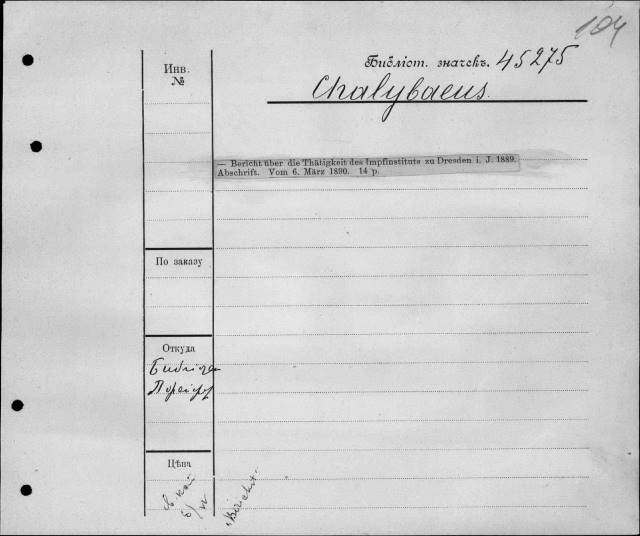 104
Библіот. значекъ. 45275
Chalybaeus.
Инв.
№
— Bericht über die Thätigkeit des Impfinstituts zu Dresden i. J. 1889.
Abschrift. Vom 6. März 1890. 14 p.
По заказу
Откуда
Цѣна